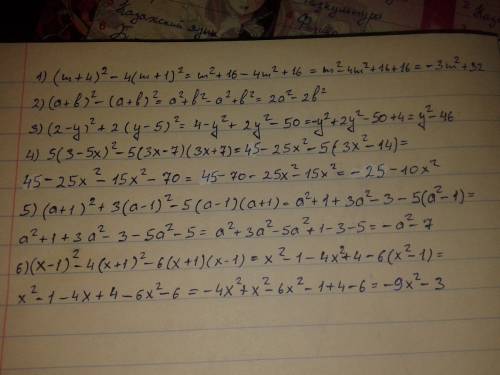 Казахский язык
1) (m+4)²-4(m+1)²=m²+16-4m²+16=m²-4m²+16+16=-3m²+32
2) (a+b)²-(a+b)²=a²+b²-a²+b²=2a²-2b²
3) (2-y)²+2(y-5)²=4-y²+2y²-50=-y²+2y²-50+4=y²-46
4) 5(3-5x)²-5(3x-7)(3x+7)=45-25x²-5(3x²-14)=
45-25x²-15x²-70=45-70-25x²-15x²=-25-10x²
5) (a+1)²+3(a-1)²-5(a-1)(a+1)=a²+1+3a²-3-5(a²-1)=
a²+1+3a²-3-5a²-5=a²+3a²-5a²+1-3-5=-a²-7
6) (x-1)²-4(x+1)²-6(x+1)(x-1)=x²-1-4x²+4-6(x²-1)=
x²-1-4x+4-6x²-6=-4x²+x²-6x²-1+4-6=-9x²-3